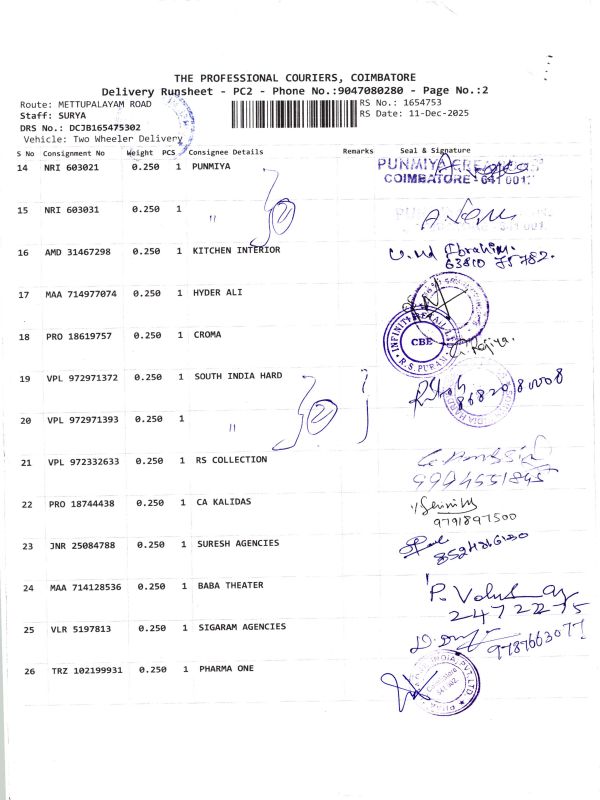 THE PROFESSIONAL COURIERS, COIMBATORE
Delivery Runsheet - PC2 - Phone No.:9047080280 - Page No.:2
Route: METTUPALAYAM ROAD RS No.: 1654753
Staff: SURYA RS Date: 11-Dec-2025
DRS No.: DCJB165475302
Vehicle: Two Wheeler Delivery
S No Consignment No Weight PCS Consignee Details Remarks Seal & Signature
14 NRI 603021 0.250 1 PUNMIYA PUNMIYA
COIMBATORE - 641 001.
15 NRI 603031 0.250 1 "
2
16 AMD 31467298 0.250 1 KITCHEN INTERIOR Ibrahim.
63810 75782.
17 MAA 714977074 0.250 1 HYDER ALI
18 PRO 18619757 0.250 1 CROMA INFINITI RETAIL LTD CBE R.S. PURAM
19 VPL 972971372 0.250 1 SOUTH INDIA HARD
20 VPL 972971393 0.250 1 " 2
21 VPL 972332633 0.250 1 RS COLLECTION
22 PRO 18744438 0.250 1 CA KALIDAS
9791897500
23 JNR 25084788 0.250 1 SURESH AGENCIES
24 MAA 714128536 0.250 1 BABA THEATER
2472275
25 VLR 5197813 0.250 1 SIGARAM AGENCIES
9787663077
26 TRZ 102199931 0.250 1 PHARMA ONE